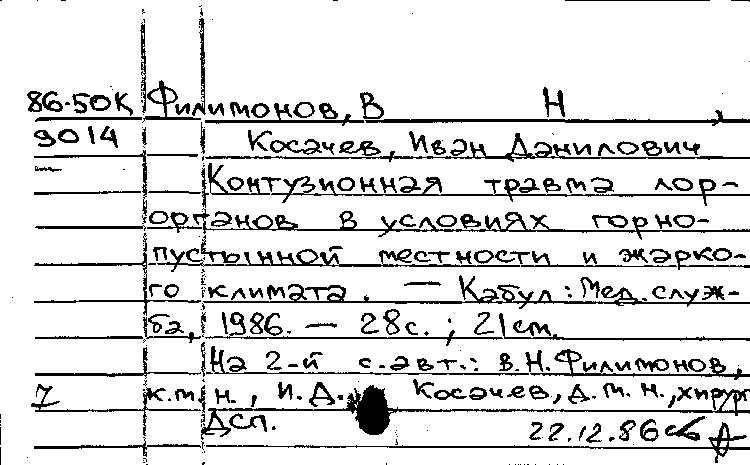 86-50К Филимонов, В Н ,
9014 Косачев, Иван Данилович
Контузионная травма лор-
органов в условиях горно-
пустынной местности и жарко-
го климата. — Кабул: Мед. служ-
ба, 1986. — 28с. ; 21 см.
На 2-й с. авт.: В.Н. Филимонов,
7 к.м.н., И.Д. Косачев, д.м.н., хирург
ДСП. 22.12.86